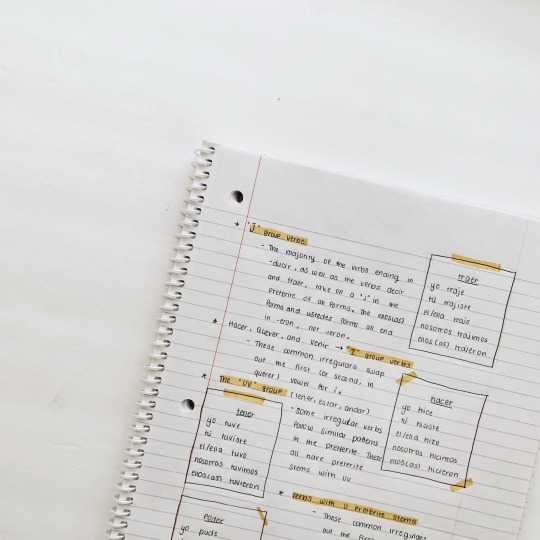 * "J" group verbs
- The majority of the verbs ending in
-ducir, as well as the verbs decir
and traer, take on a "j" in the
preterite of all forms. The ellos(as)
forms and ustedes forms all end
in -eron, not -ieron.
traer
yo traje
tú trajiste
el/ella trajo
nosotros trajimos
ellos(as) trajeron
* Hacer, Querer, and Venir → "I" group verbs
- These common irregulars swap
out the first (or second, in
querer) vowel for i.
hacer
yo hice
tú hiciste
el/ella hizo
nosotros hicimos
ellos(as) hicieron
* The "UV" group (tener, estar, andar)
- Some irregular verbs
follow similar patterns
in the preterite. These
all have preterite
stems with uv
tener
yo tuve
tú tuviste
el/ella tuvo
nosotros tuvimos
ellos(as) tuvieron
* Verbs with U Preterite Stems
- These common irregulars
out the first
poder
yo pude